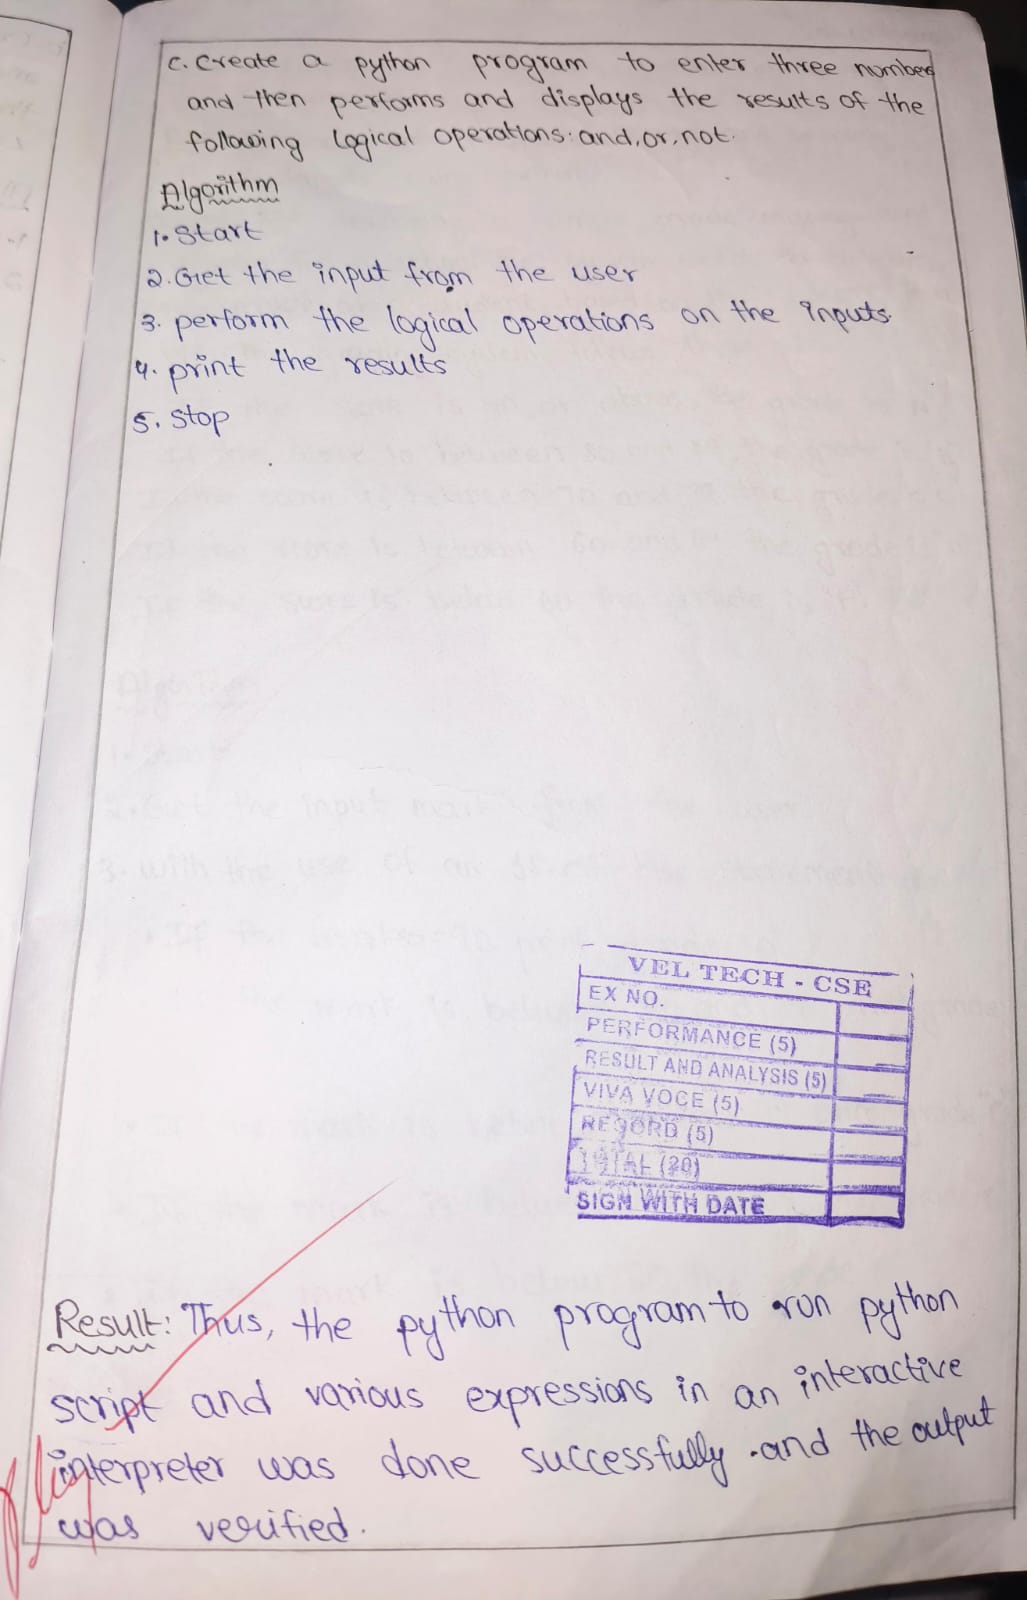 c. Create a python program to enter three numbers
and then performs and displays the results of the
following logical operations: and, or, not.
Algorithm
1. Start
2. Get the input from the user
3. perform the logical operations on the inputs.
4. print the results
5. Stop
VEL TECH - CSE
EX NO.
PERFORMANCE (5)
RESULT AND ANALYSIS (5)
VIVA VOCE (5)
RECORD (5)
TOTAL (20)
SIGN WITH DATE
Result: Thus, the python program to run python
script and various expressions in an interactive
interpreter was done successfully and the output
was verified.